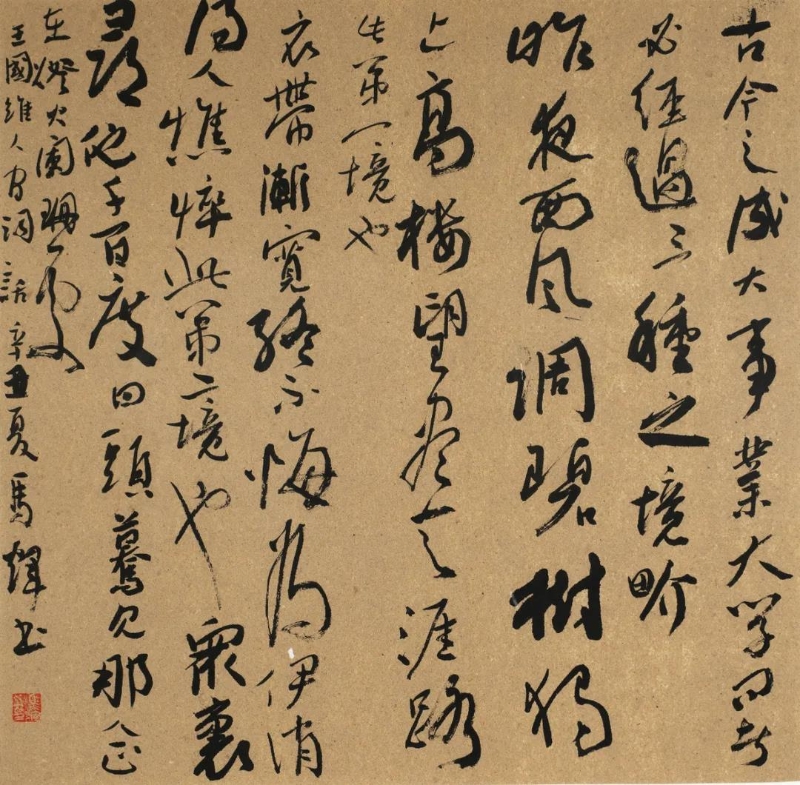 古今之成大事業大学问者
必经過三種之境畍
昨夜西风凋碧樹独
上髙楼望尽天涯路
此第一境也
衣帶漸寛終不悔为伊消
得人憔悴此第二境也衆裏
尋他千百度回頭驀见那人正
在燈火闌珊處
王國維人间词話辛丑夏馬輝书